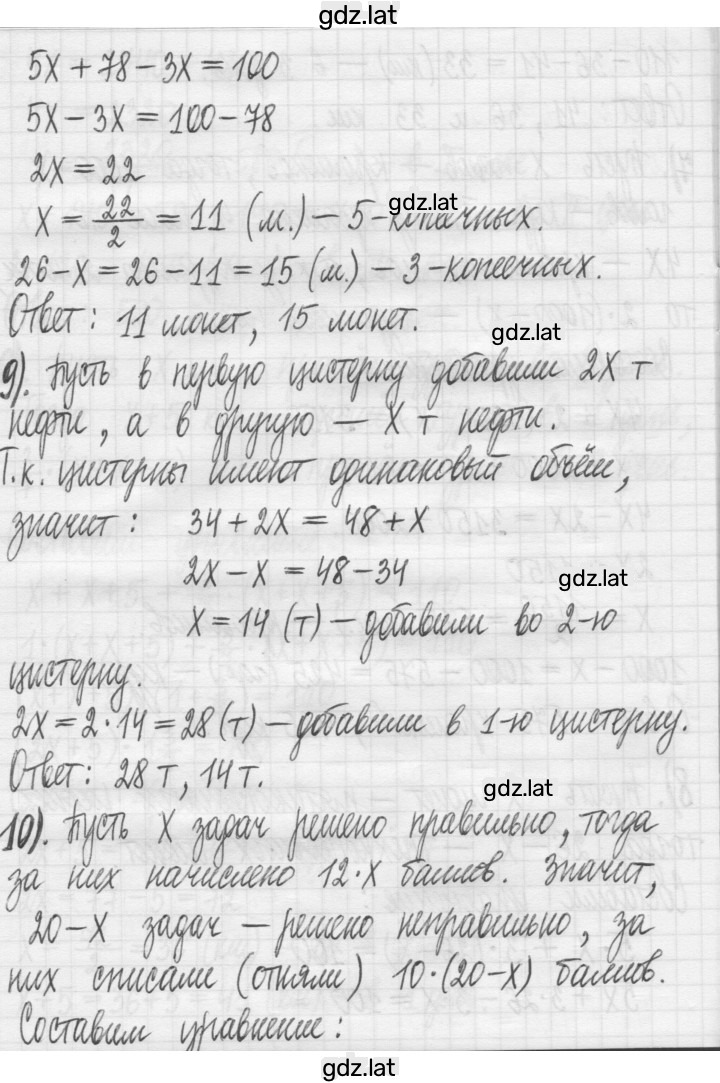 gdz.lat
5x + 78 - 3x = 100
5x - 3x = 100 - 78
2x = 22
gdz.lat
x = 22/2 = 11 (м.) - 5-копеечных.
26 - x = 26 - 11 = 15 (м.) - 3-копеечных.
Ответ: 11 монет, 15 монет.
gdz.lat
9). Пусть в первую цистерну добавили 2x т
нефти, а в другую — x т нефти.
Т.к. цистерны имеют одинаковый объём,
значит: 34 + 2x = 48 + x
2x - x = 48 - 34
gdz.lat
x = 14 (т) - добавили во 2-ю
цистерну.
2x = 2·14 = 28 (т) - добавили в 1-ю цистерну.
Ответ: 28 т, 14 т.
gdz.lat
10). Пусть x задач решено правильно, тогда
за них начислено 12·x баллов. Значит,
20 - x задач - решено неправильно, за
них списали (отняли) 10·(20-x) баллов.
Составим уравнение:
gdz.lat